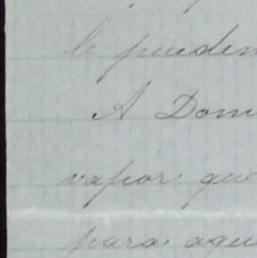 le pueden
A Dom
vapor que
para aqu